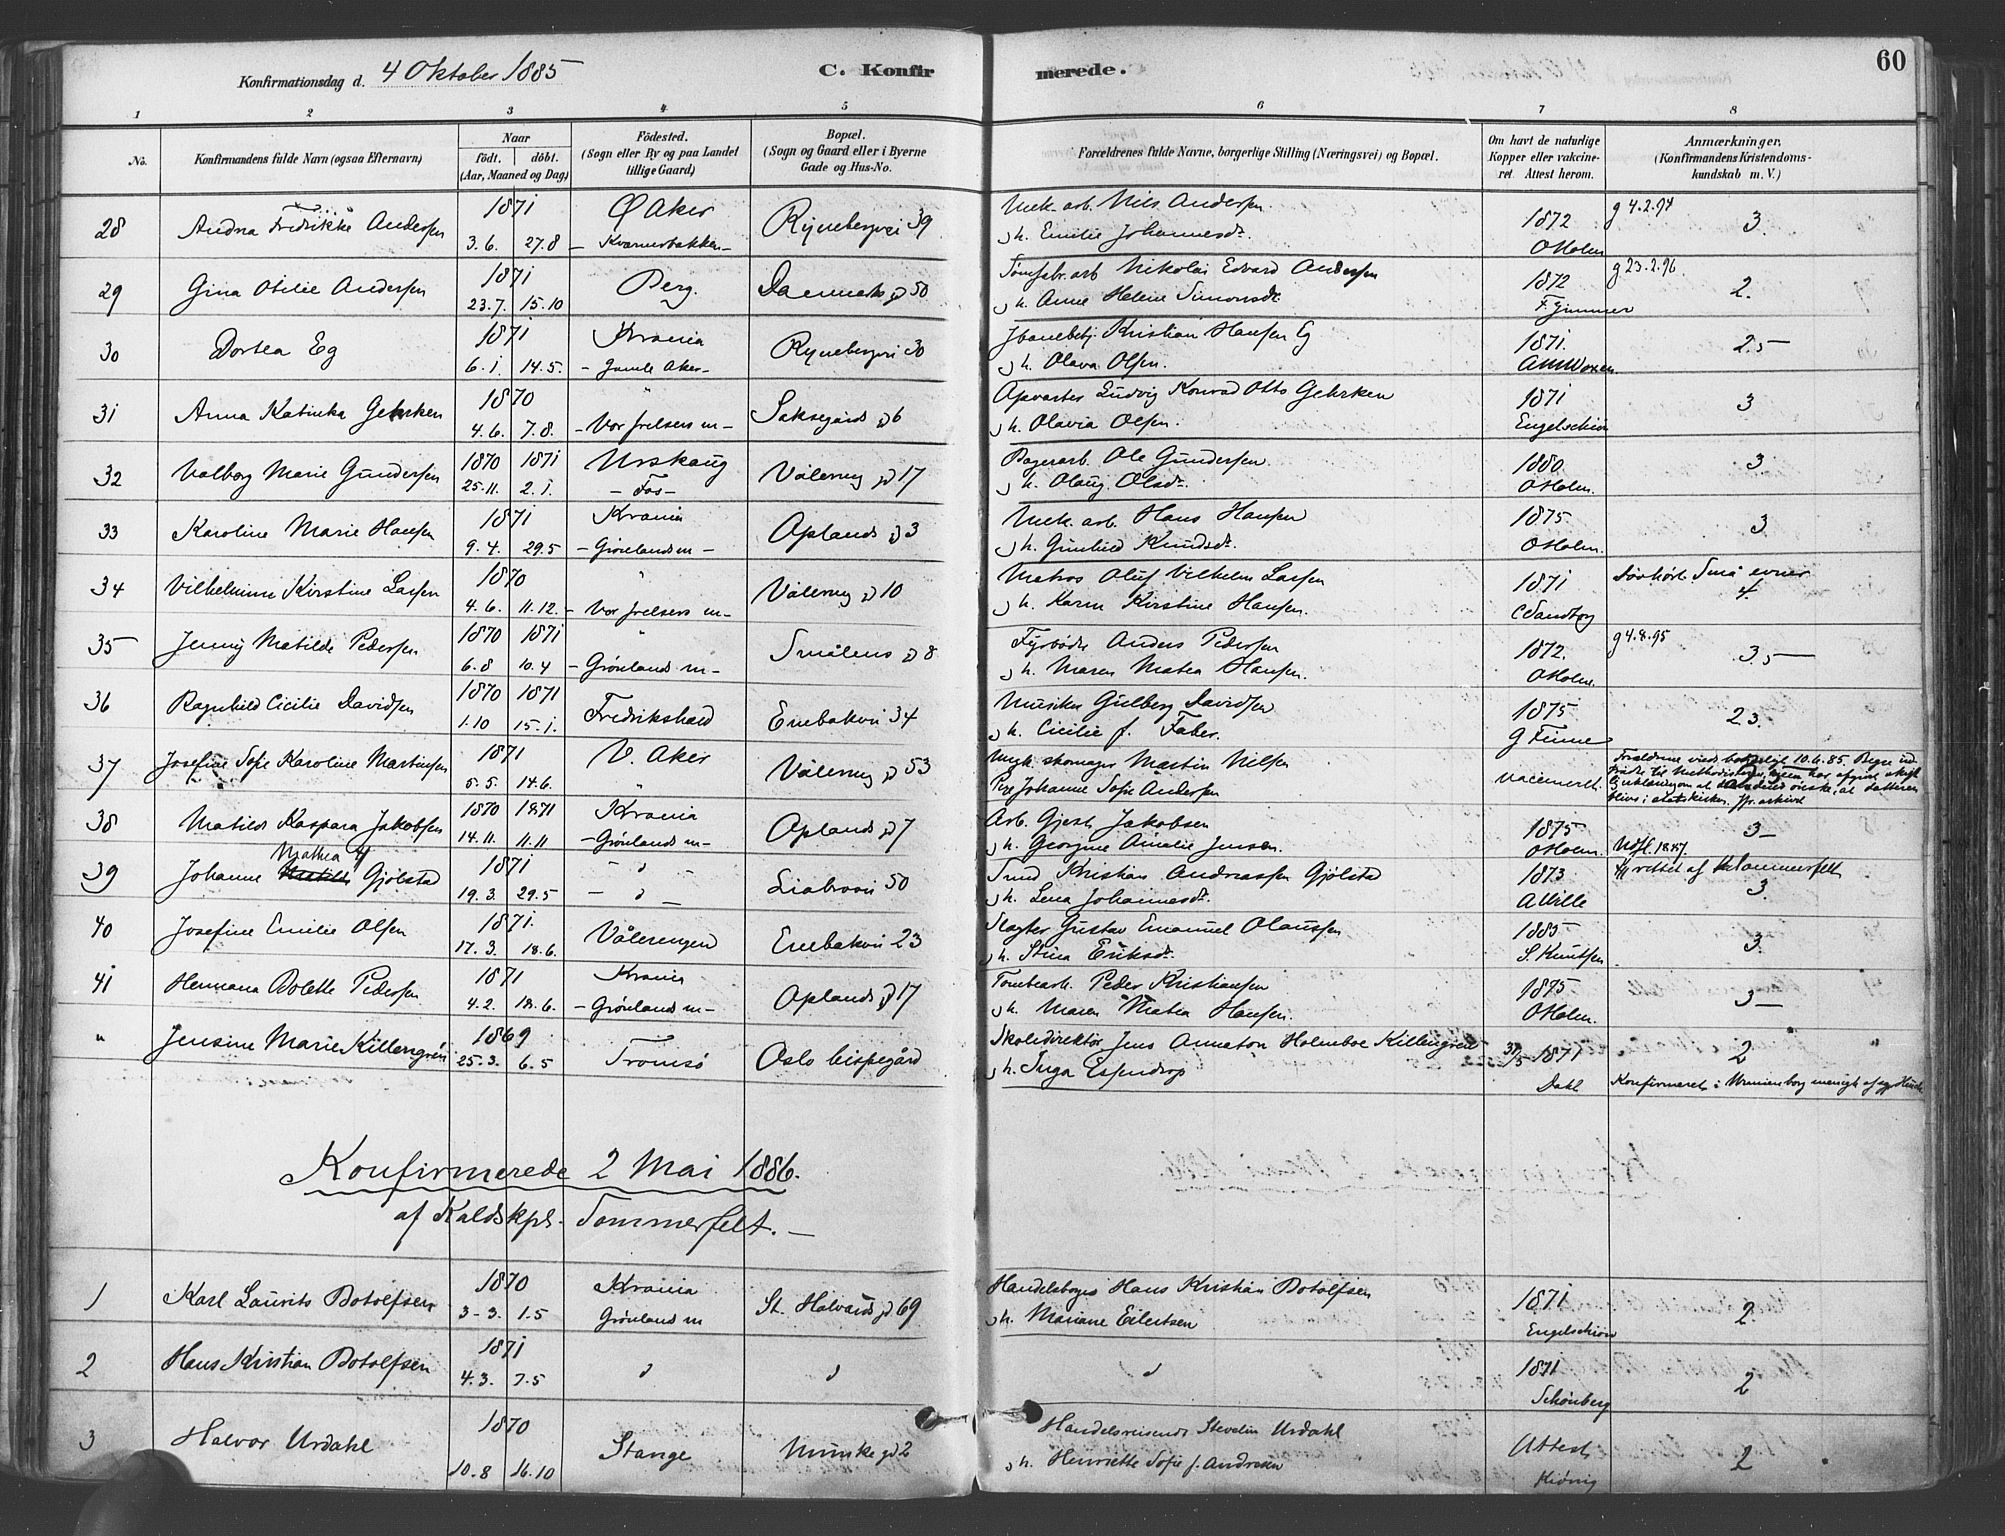 Konfirmationsdag d. 4 Oktober 1885
C. Konfirmerede.
60
1 2 3 4 5 6 7 8
No.
Konfirmandens fulde Navn (ogsaa Efternavn)
Naar
födt. döbt.
(Aar, Maaned og Dag)
Födested.
(Sogn eller By og paa Landet
tillige Gaard)
Bopæl.
(Sogn og Gaard eller i Byerne
Gade og Hus-No.
Forældrenes fulde Navne, borgerlige Stilling (Næringsvei) og Bopæl.
Om havt de naturlige
Kopper eller vakcine-
ret. Attest herom.
Anmærkninger,
(Konfirmandens Kristendoms-
kundskab m. V.)
28 Andrea Fredrikke Andersen 1871 3.6. 27.8 Ø Aker Ryenbergvei 39
Mek. arb. Nils Andersen
h. Emilie Johannesdr. 1872 OHolm g 4.2.94 3
29 Gina Otilie Andersen 1871 23.7. 15.10 Berg. Danmarks gd 50
Nikolai Edvard Andersen
h. Anne Helene Simonsdr. 1872 g 23.2.96. 2.
30 Dortea Eg 1871 6.1. 14.5. Krania – Gamle Aker – Ryenbergvei 30
Kristian Hansen Eg
h. Olava Olsen. 1871. 2.5
31 Anna Katinka Gehrken 1870 4.6. 7.8. " – Vor frelsers m – Saksegårds gd 6
Opvarter Ludvig Konrad Otto Gehrken
h. Olavia Olsen. 1871 Engelschiøn 3
32 Valborg Marie Gundersen 1870 1871 25.11. 2.1. Urskoug – Fos – Vålereng gd 17
Bagerarb. Ole Gundersen
h. Olaug Olsdr. 1880. OHolm. 3
33 Karoline Marie Hansen 1871 9.4. 29.5 Krania – Grønlands m – Oplands gd 3
Mek. arb. Hans Hansen
h. Gunhild Knudsdr. 1875 OHolm. 3
34 Vilhelmine Kirstine Larsen 1870 4.6. 11.12. " – Vor frelsers m – Vålereng gd 10
Matros Oluf Vilhelm Larsen
h. Karen Kirstine Hansen. 1871 CSandberg Døvhørt. Små evner 4.
35 Jenny Matilde Pedersen 1870 1871 6.8 10.4 " – Grønlands m – Smålens gd 8
Fyrbøder Anders Pedersen
h. Maren Matea Hansen. 1872. OHolm. g 4.8.95 3.5
36 Ragnhild Cicilie Davidsen 1870 1871 1.10 15.1. Fredrikshald Enebakvei 34
Musiker Gulberg Davidsen
h. Cicilie f. Faber. 1875 G Finne 2 3.
37 Josefine Sofie Karoline Martinsen 1871 5.5. 14.6. V. Aker " Vålereng gd 53
skomager Martin Nilsen
Pige Johanne Sofie Andersen vaccineret. Forældrene viede borgerligt 10.6.85.
38 Matilde Kaspara Jakobsen 1870 1871 14.11. 11.11 Krania – Grønlands m – Oplands gd 7
Arb. Gjest Jakobsen
h. Georgine Amalie Jensen 1875 OHolm. 3 –
39 Johanne Mathea Gjølstad 1871 19.3. 29.5 Liabrovei 50
Kristian Andreassen Gjølstad
h. Lena Johannesdr. 1873 AWille rettet af Sommerfelt 3.
40 Josefine Emilie Olsen 1871. 17.3. 18.6. Vålerengen Enebakvei 23
Slagter Gustav Emanuel Olaussen
h. Stina Eriksdr. 1885 S. Knutsen 3.
41 Hermana Bolette Pedersen 1871 4.2. 18.6. Krania – Grønlands m – Oplands gd 17
Tomtearb. Peder Kristiansen
h. Maren Matea Hansen. 1875 OHolm. 3 –
" Jensine Marie Killengreen 1869 25.3. 6.5 Tromsø Oslo bispegård
Skoledirektør Jens Anneton Holmboe Killengreen
h. Inga Essendrop 1871 Dahl 2
Konfirmeret i Uranienborg menigh. af
Konfirmerede 2 Mai 1886.
af Kaldskpl. Sommerfelt. –
1 Karl Laurits Botolfsen 1870 3-3. 1.5 Krania Grønlands m St. Halvards gd 69
Hans Kristian Botolfsen
h. Mariane Eilertsen 1871 Engelschiøn 2.
2 Hans Kristian Botolfsen 1871 4.3. 7.5 1871 Schönberg 2
3 Halvor Urdahl 1870 10.8 16.10 Stange Munke gd 2
Handelsreisende Urdahl
h. Henriette Sofie f. Andresen Attest 2